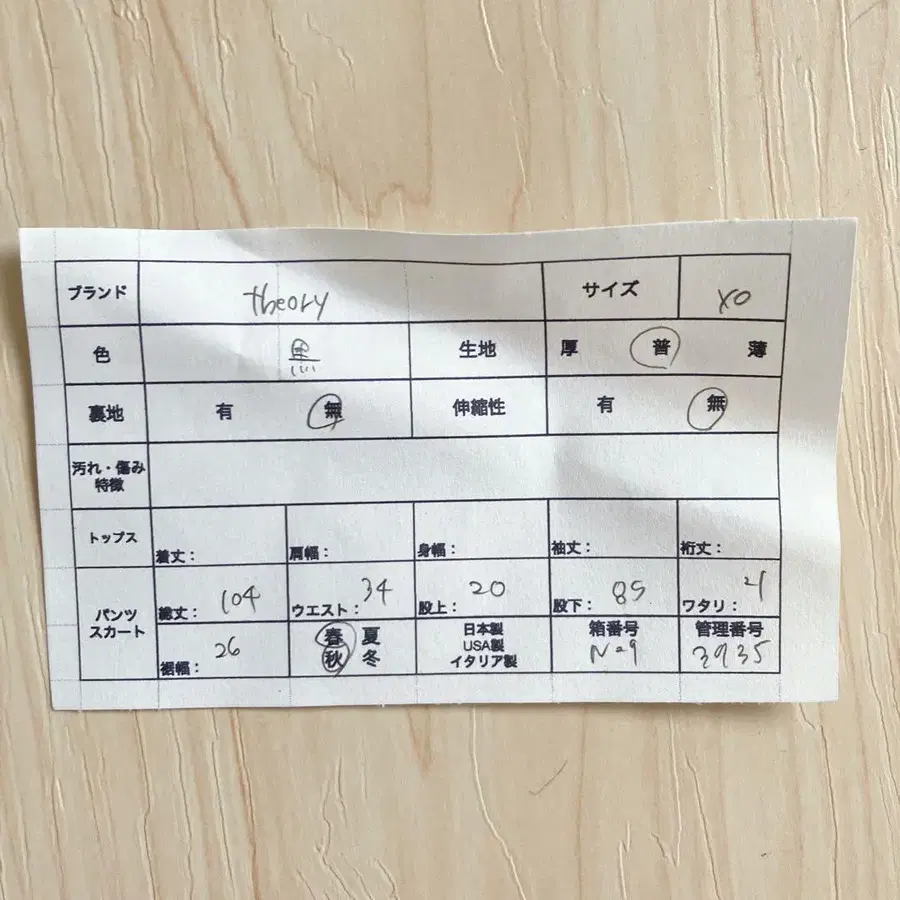 ブランド theory サイズ XO
色 黒 生地 厚 普 薄
裏地 有 無 伸縮性 有 無
汚れ・傷み
特徴
トップス 着丈： 肩幅： 身幅： 袖丈： 裄丈：
パンツ
スカート
総丈： 104 ウエスト： 34 股上： 20 股下： 85 ワタリ：
裾幅： 26
春 夏
秋 冬
日本製
USA製
イタリア製
箱番号
No9
管理番号
3935